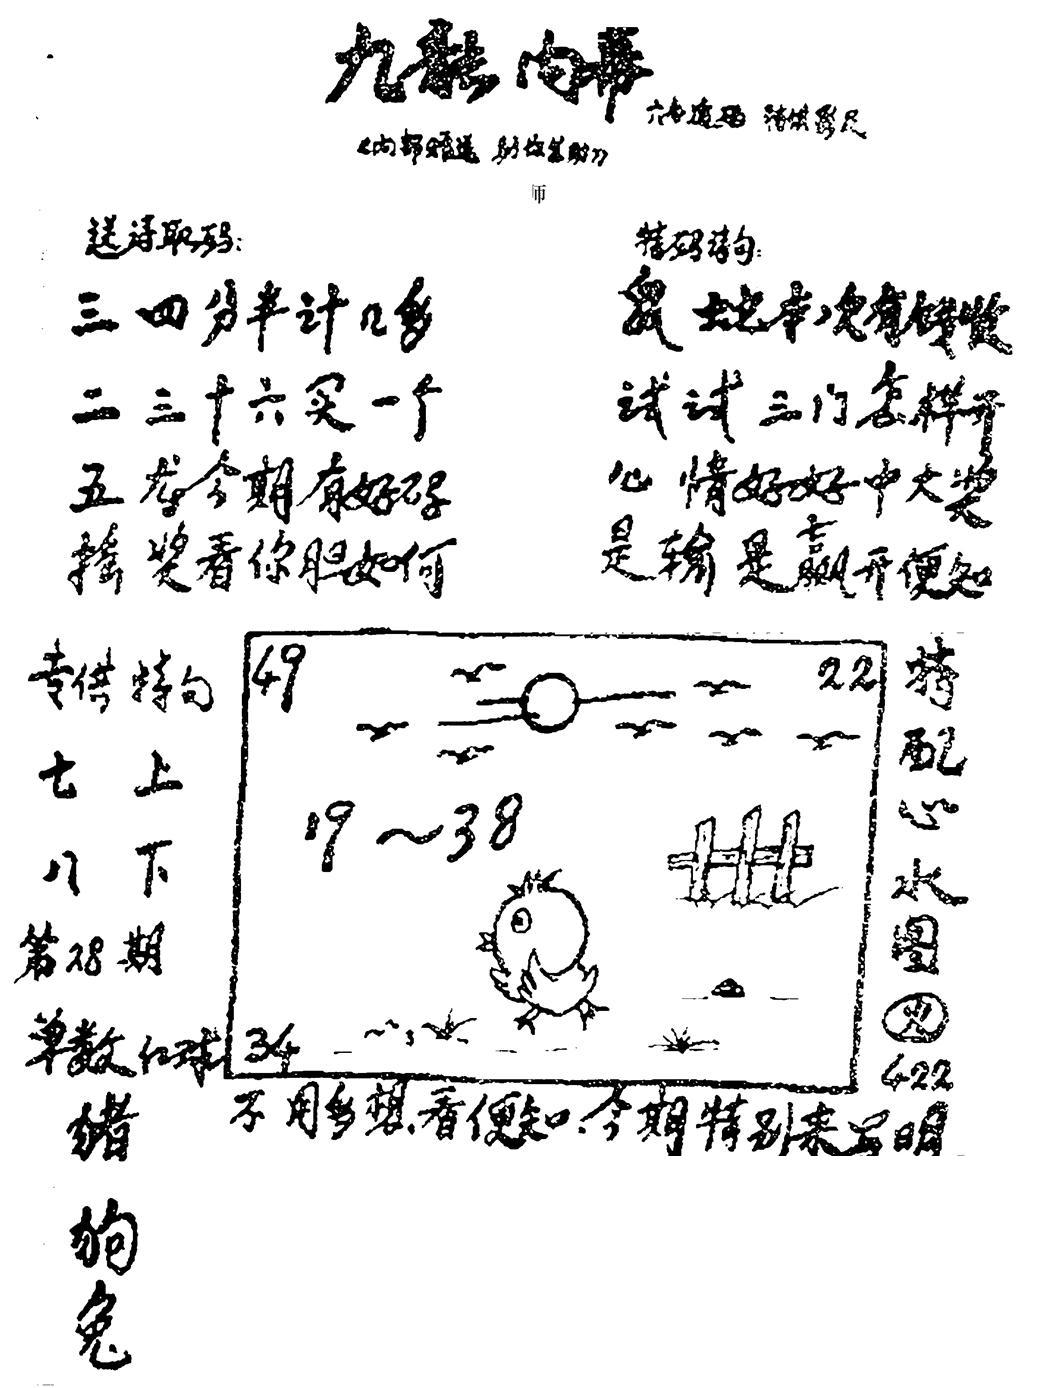 九龍内幕
六合透码
《内部精选 助》
师
送诗取码:
三四分半计几多
二三十六买一个
五龙今期有好码
摇奖看你胆如何
特码诗句:
鼠蛇本次有钱收
试试三门怎样开
心情好好中大奖
是输是赢开便知
专供特句
七上
八下
第28期
单数红球
猪
狗
兔
49
22
19~38
34
特配心水图
422
不用多想.看便知.今期特别来